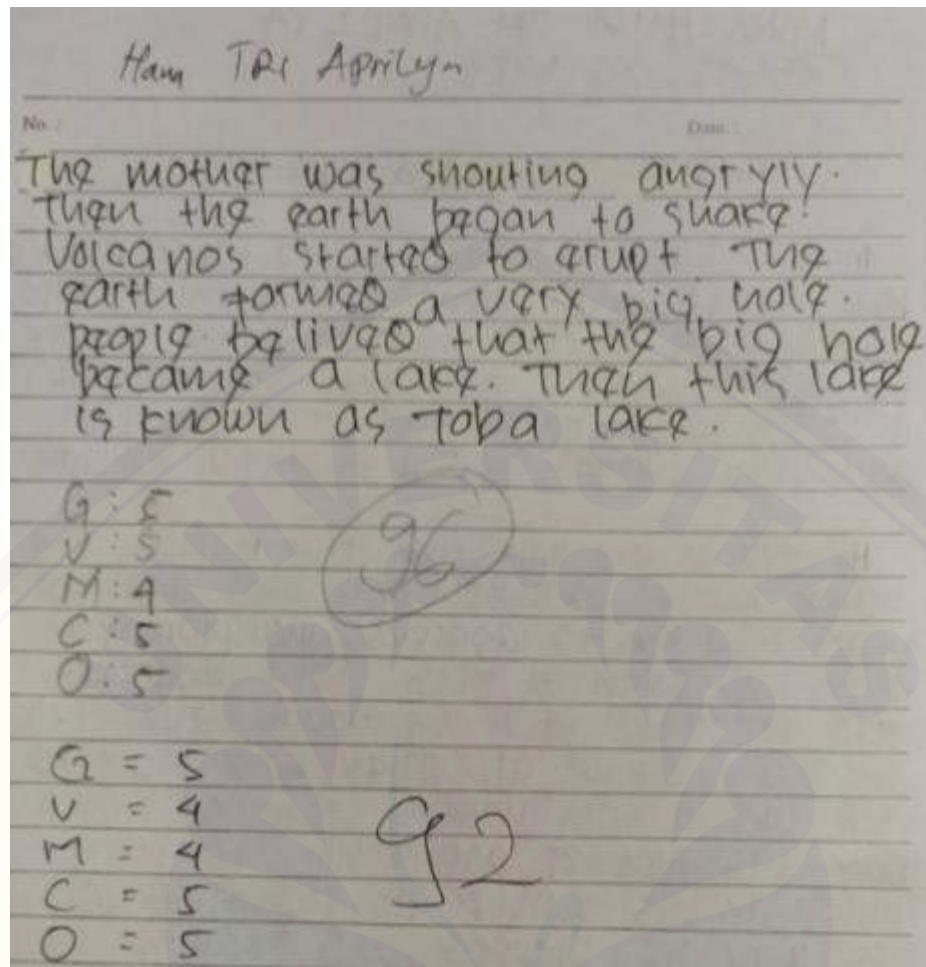 Ham TRI Aprilyn
No. :
Date. :
The mother was shouting angryly.
Then the earth began to shake.
Volcanos started to erupt. The
earth formed a very big hole.
people belived that the big hole
became a lake. Then this lake
is known as Toba lake.
G : 5
V : 5
M : 4
C : 5
O : 5
96
G = 5
V = 4
M = 4
C = 5
O = 5
92
UNIVERSITAS